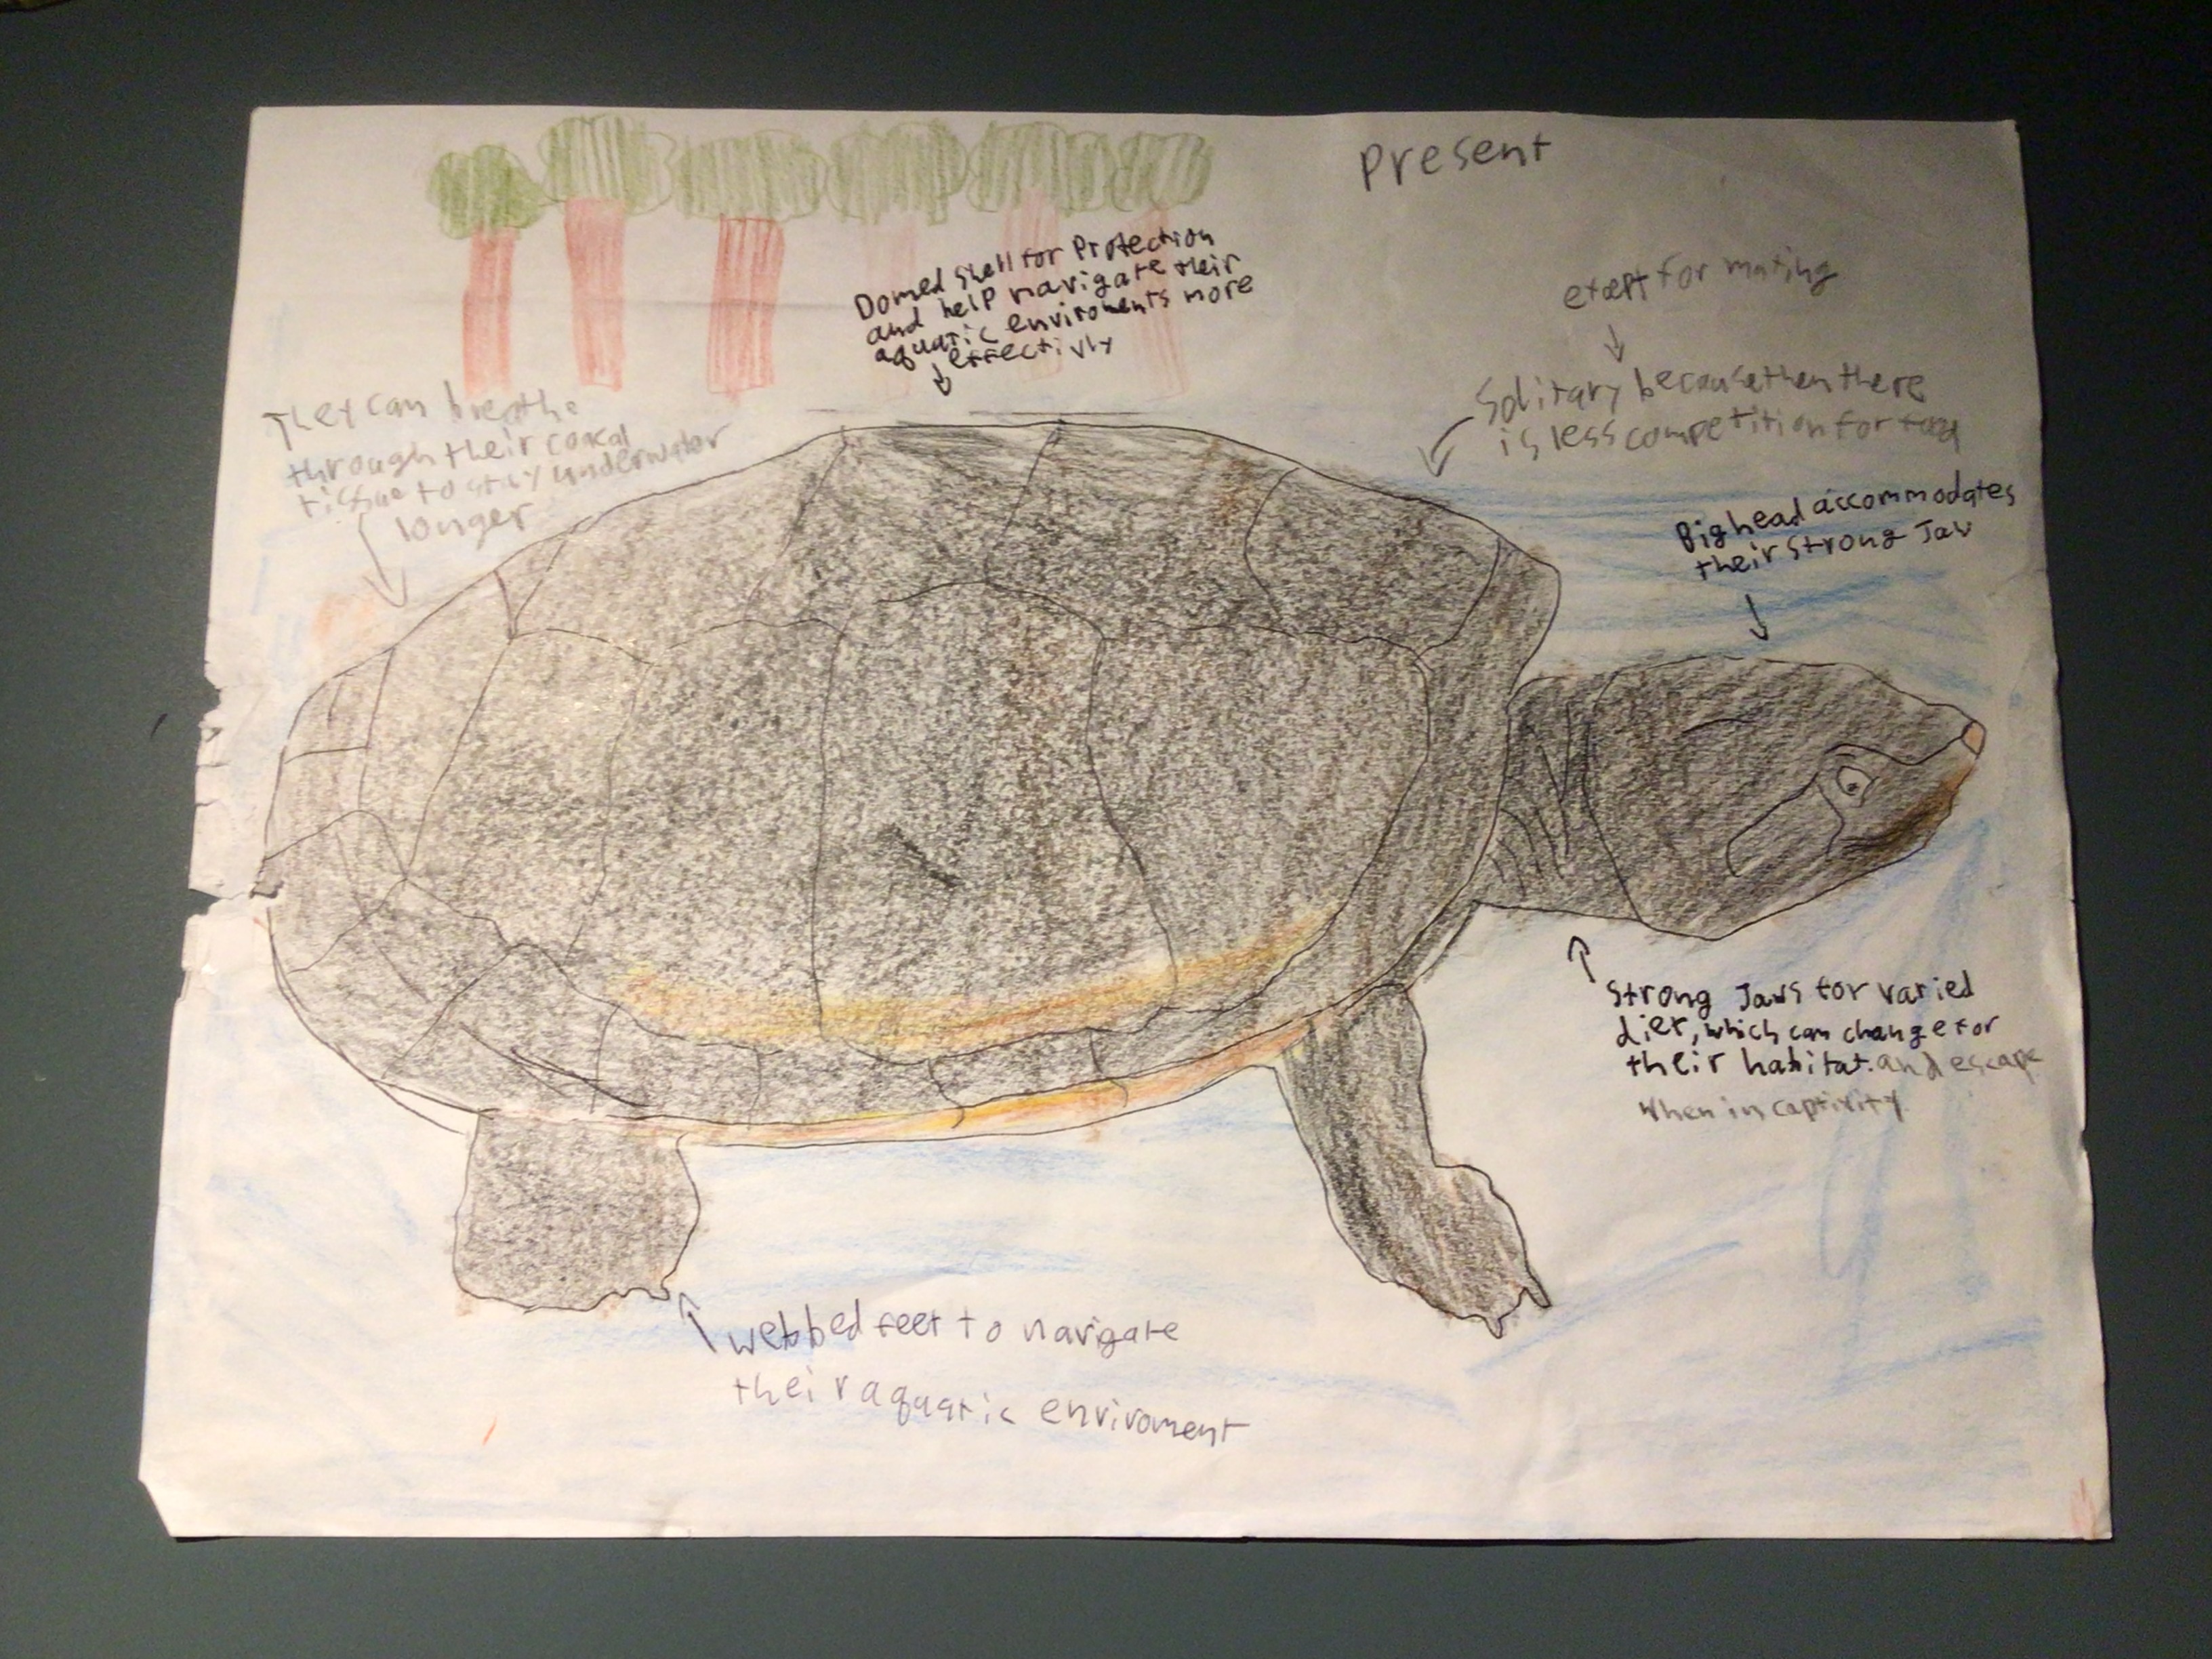 Present
Domed shell for Protection
and help navigate their
aquatic enviroments more
effectivly
exept for mating
Solitary because then there
is less competition for food
They can breathe
through their coacal
tissue to stay underwater
longer
Big head accommodates
their strong Jaw
Strong Jaws for varied
diet, which can change for
their habitat. and escape
when in captivity
webbed feet to navigate
their aquatic enviroment